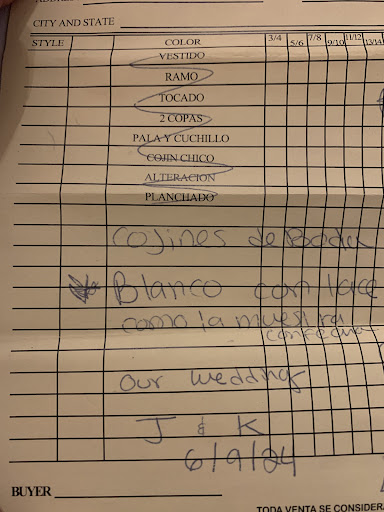 CITY AND STATE
STYLE COLOR 3/4 5/6 7/8 9/10 11/12 13/14
VESTIDO
RAMO
TOCADO
2 COPAS
PALA Y CUCHILLO
COJIN CHICO
ALTERACION
PLANCHADO
Cojines de Boda
Blanco con lace
como la muestra
con fecha
our wedding
J & K
6/9/24
BUYER
TODA VENTA SE CONSIDER